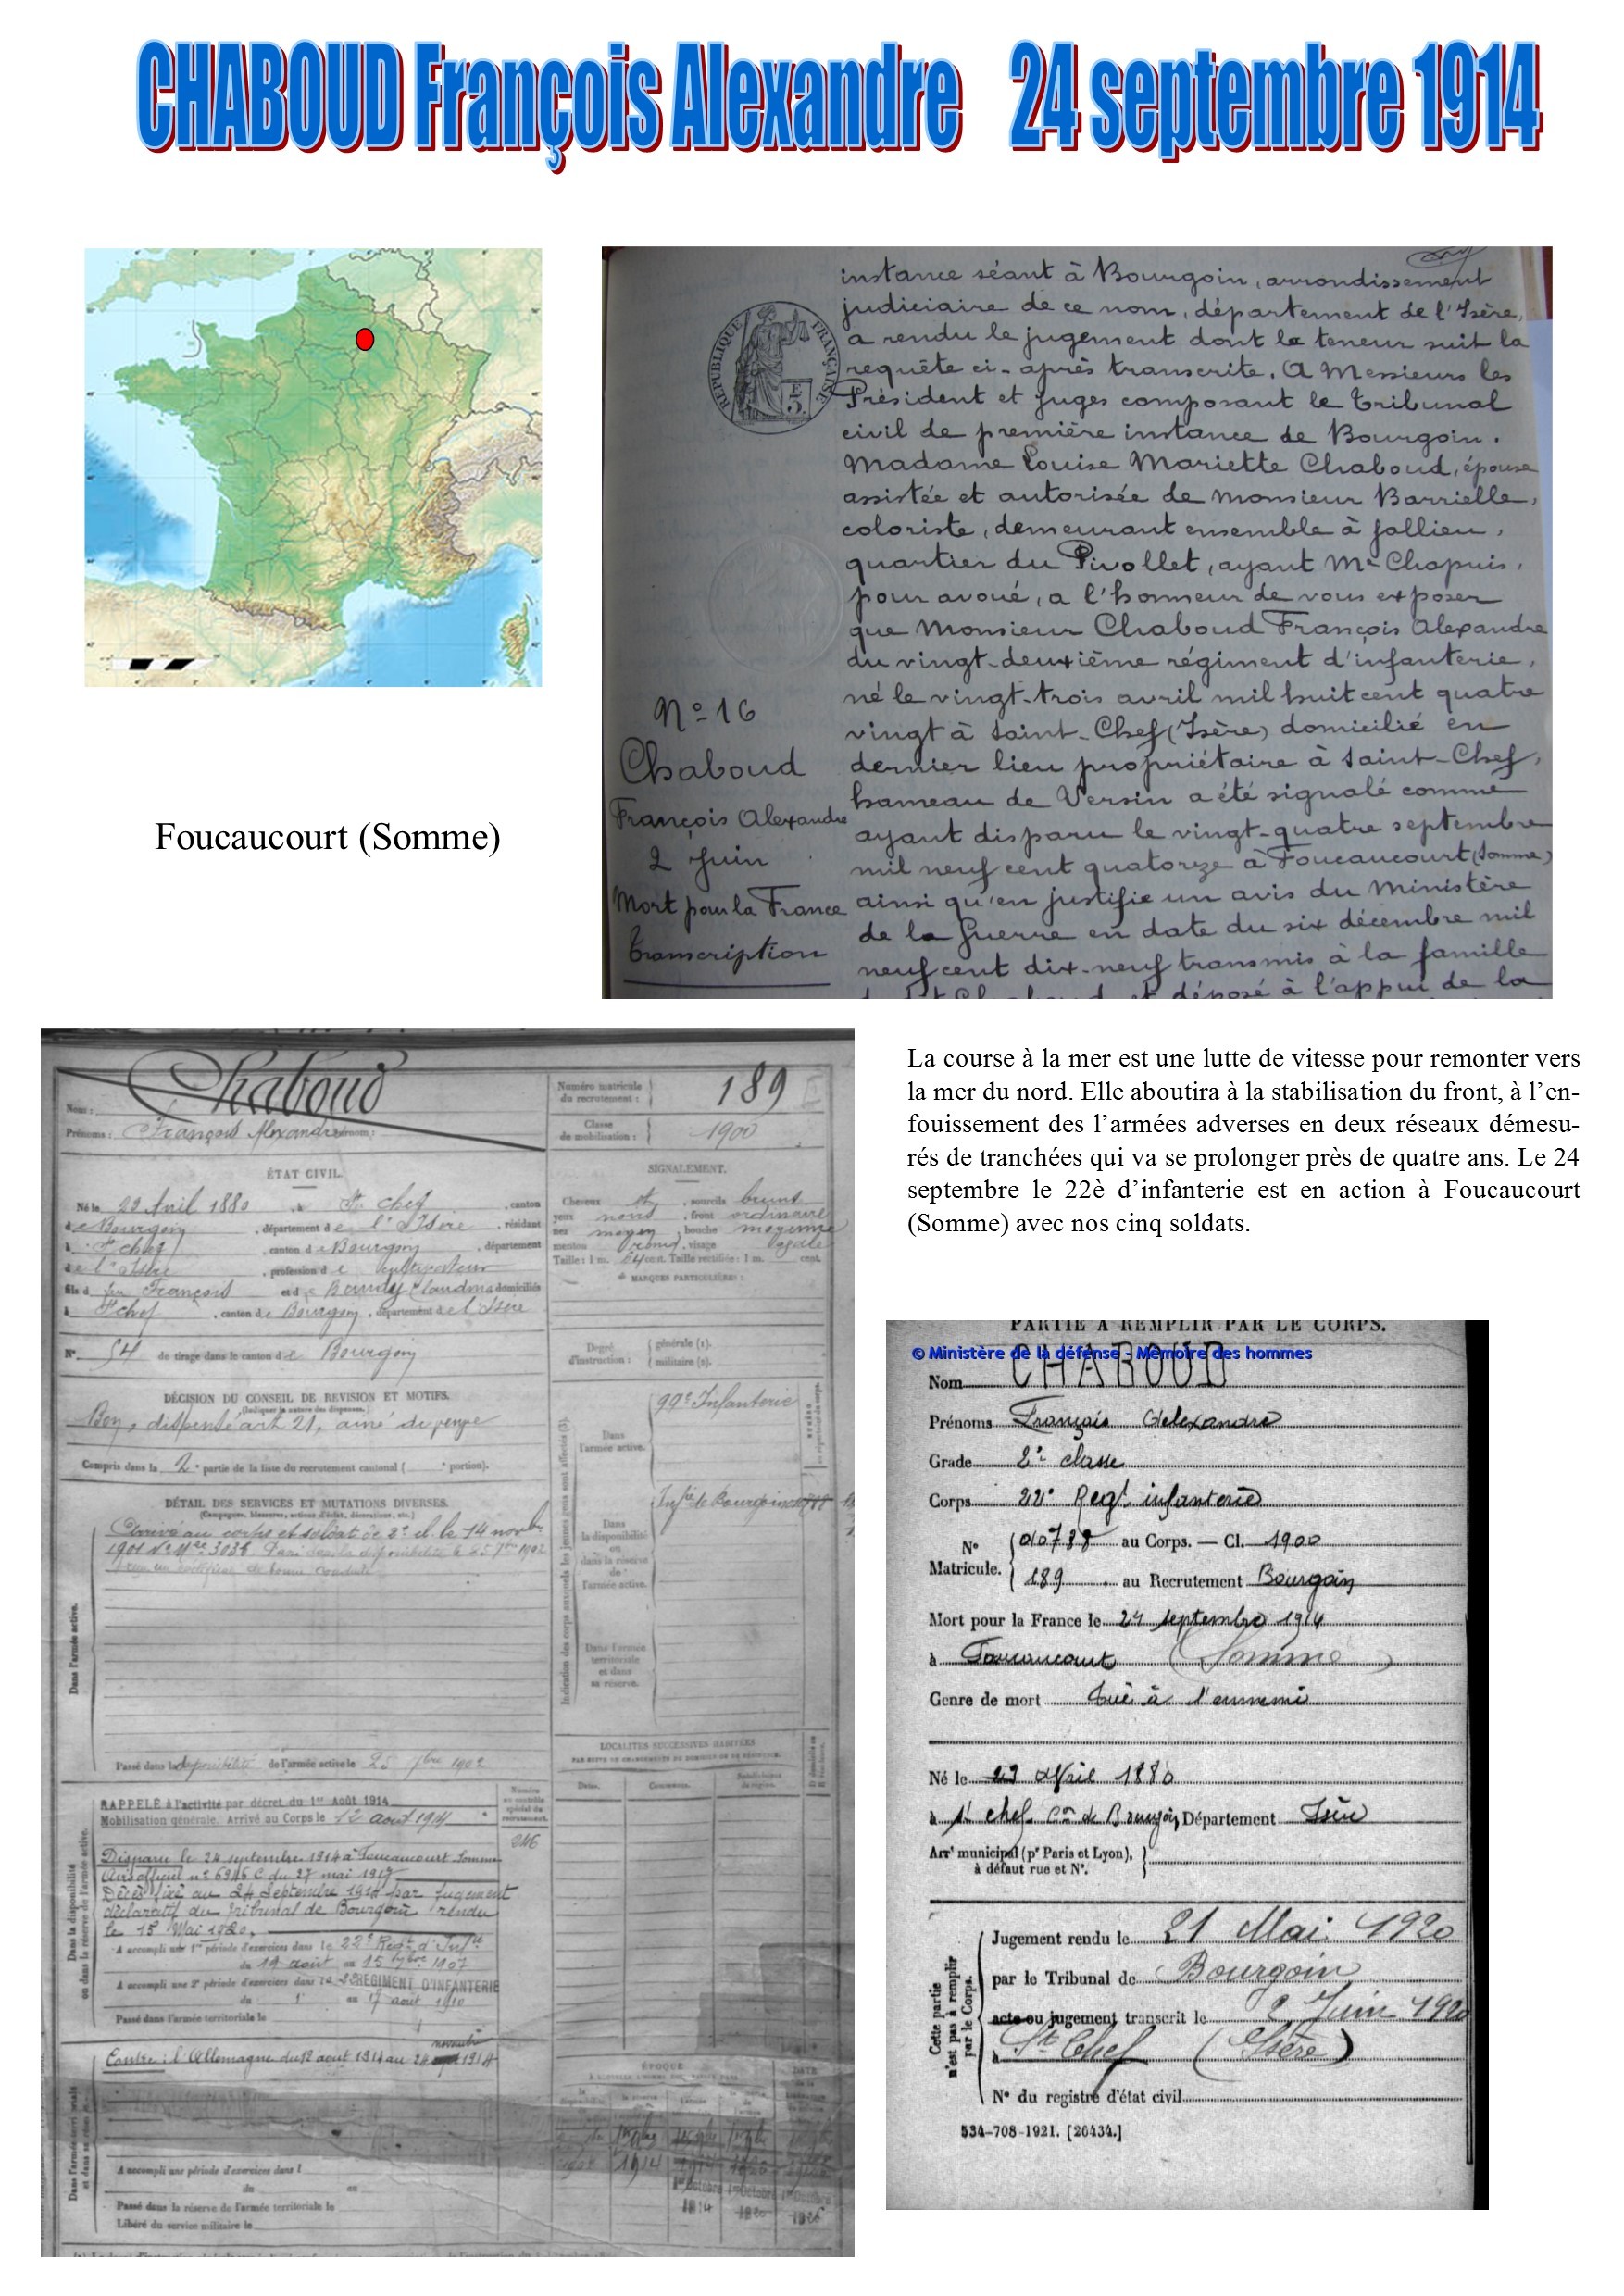 CHABOUD François Alexandre 24 septembre 1914
instance séant à Bourgoin, arrondissement
judiciaire de ce nom, département de l'Isère,
a rendu le jugement dont la teneur suit la
requête ci-après transcrite. A Messieurs les
Président et juges composant le Tribunal
civil de première instance de Bourgoin.
Madame Louise Mariette Chaboud, épouse
assistée et autorisée de Monsieur Barrielle,
coloriste, demeurant ensemble à Jallieu,
quartier du Pivollet, ayant Me Chapuis,
pour avoué, a l'honneur de vous exposer
que Monsieur Chaboud François Alexandre
du vingt-deuxième régiment d'infanterie,
né le vingt-trois avril mil huit cent quatre
vingt à Saint-Chef (Isère) domicilié en
dernier lieu propriétaire à Saint-Chef,
hameau de Versin a été signalé comme
ayant disparu le vingt-quatre septembre
mil neuf cent quatorze à Foucaucourt (Somme)
ainsi qu'en justifie un avis du Ministère
de la Guerre en date du six décembre mil
neuf cent dix-neuf transmis à la famille
déposé à l'appui de la
RÉPUBLIQUE FRANÇAISE
N° 16
Chaboud
François Alexandre
2 Juin
Mort pour la France
Transcription
Foucaucourt (Somme)
La course à la mer est une lutte de vitesse pour remonter vers
la mer du nord. Elle aboutira à la stabilisation du front, à l'en-
fouissement des l'armées adverses en deux réseaux démesu-
rés de tranchées qui va se prolonger près de quatre ans. Le 24
septembre le 22è d'infanterie est en action à Foucaucourt
(Somme) avec nos cinq soldats.
Nom : Chaboud
Prénoms : François Alexandre surnom :
Numéro matricule du recrutement : 189
Classe de mobilisation : 1900
ÉTAT CIVIL.
Né le 23 Avril 1880, à St Chef, canton
de Bourgoin, département de l'Isère, résidant
à St Chef, canton de Bourgoin, département
de l'Isère, profession de cultivateur
fils de feu François et de Claudine domiciliés
à St Chef, canton de Bourgoin, département de l'Isère
N° 54 de tirage dans le canton de Bourgoin
SIGNALEMENT.
Cheveux et sourcils bruns
yeux , front ordinaire
nez moyen, bouche moyenne
menton rond, visage ovale
Taille : 1 m. 64 cent. Taille rectifiée : 1 m. cent.
MARQUES PARTICULIÈRES :
Degré d'instruction : générale (1). militaire (2).
DÉCISION DU CONSEIL DE REVISION ET MOTIFS.
Bon, dispensé art 21, aîné de veuve
Compris dans la 2e partie de la liste du recrutement cantonal ( portion).
DÉTAIL DES SERVICES ET MUTATIONS DIVERSES.
(Campagnes, blessures, actions d'éclat, décorations, etc.)
Arrivé au corps et soldat de 2e cl. le 14 novbre
1901
Passé dans la disponibilité de l'armée active le 25 7bre 1902
Dans l'armée active.
99e Infanterie
Dans la disponibilité ou dans la réserve de l'armée active.
Infie de Bourgoin
Dans l'armée territoriale et dans sa réserve.
LOCALITÉS SUCCESSIVES HABITÉES
Dates. Communes. Subdivisions de région.
RAPPELÉ à l'activité par décret du 1er Août 1914
Mobilisation générale. Arrivé au Corps le 12 aout 1914
Disparu le 24 septembre 1914 à Foucaucourt Somme
Avis officiel n° 6946 C du 27 mai 1917
Décès fixé au 24 Septembre 1914 par jugement
déclaratif du Tribunal de Bourgoin rendu
le 15 Mai 1920.
A accompli une 1re période d'exercices dans le 22e Regt d'Infie
du 19 août au 15 7bre 1907
A accompli une 2e période d'exercices dans le 22e RÉGIMENT D'INFANTERIE
du 1 au 17 août 1910
Passé dans l'armée territoriale le
Contre : l'Allemagne du 12 aout 1914 au 24 1914
A accompli une période d'exercices dans l
du au
Passé dans la réserve de l'armée territoriale le
Libéré du service militaire le
ÉPOQUE
PARTIE A REMPLIR PAR LE CORPS.
© Ministère de la défense - Mémoire des hommes
Nom CHABOUD
Prénoms François Alexandre
Grade 2e classe
Corps 22e Regt infanterie
N° Matricule. 010788 au Corps. — Cl. 1900
189 au Recrutement Bourgoin
Mort pour la France le 24 septembre 1914
à Foucaucourt (Somme)
Genre de mort Tué à l'ennemi
Né le 23 Avril 1880
à St Chef Con de Bourgoin Département Isère
Arrt municipal (pr Paris et Lyon), à défaut rue et N°.
Cette partie n'est pas à remplir par le Corps.
Jugement rendu le 21 Mai 1920
par le Tribunal de Bourgoin
acte ou jugement transcrit le 2 Juin 1920
à St Chef (Isère)
N° du registre d'état civil
534-708-1921. [26434.]